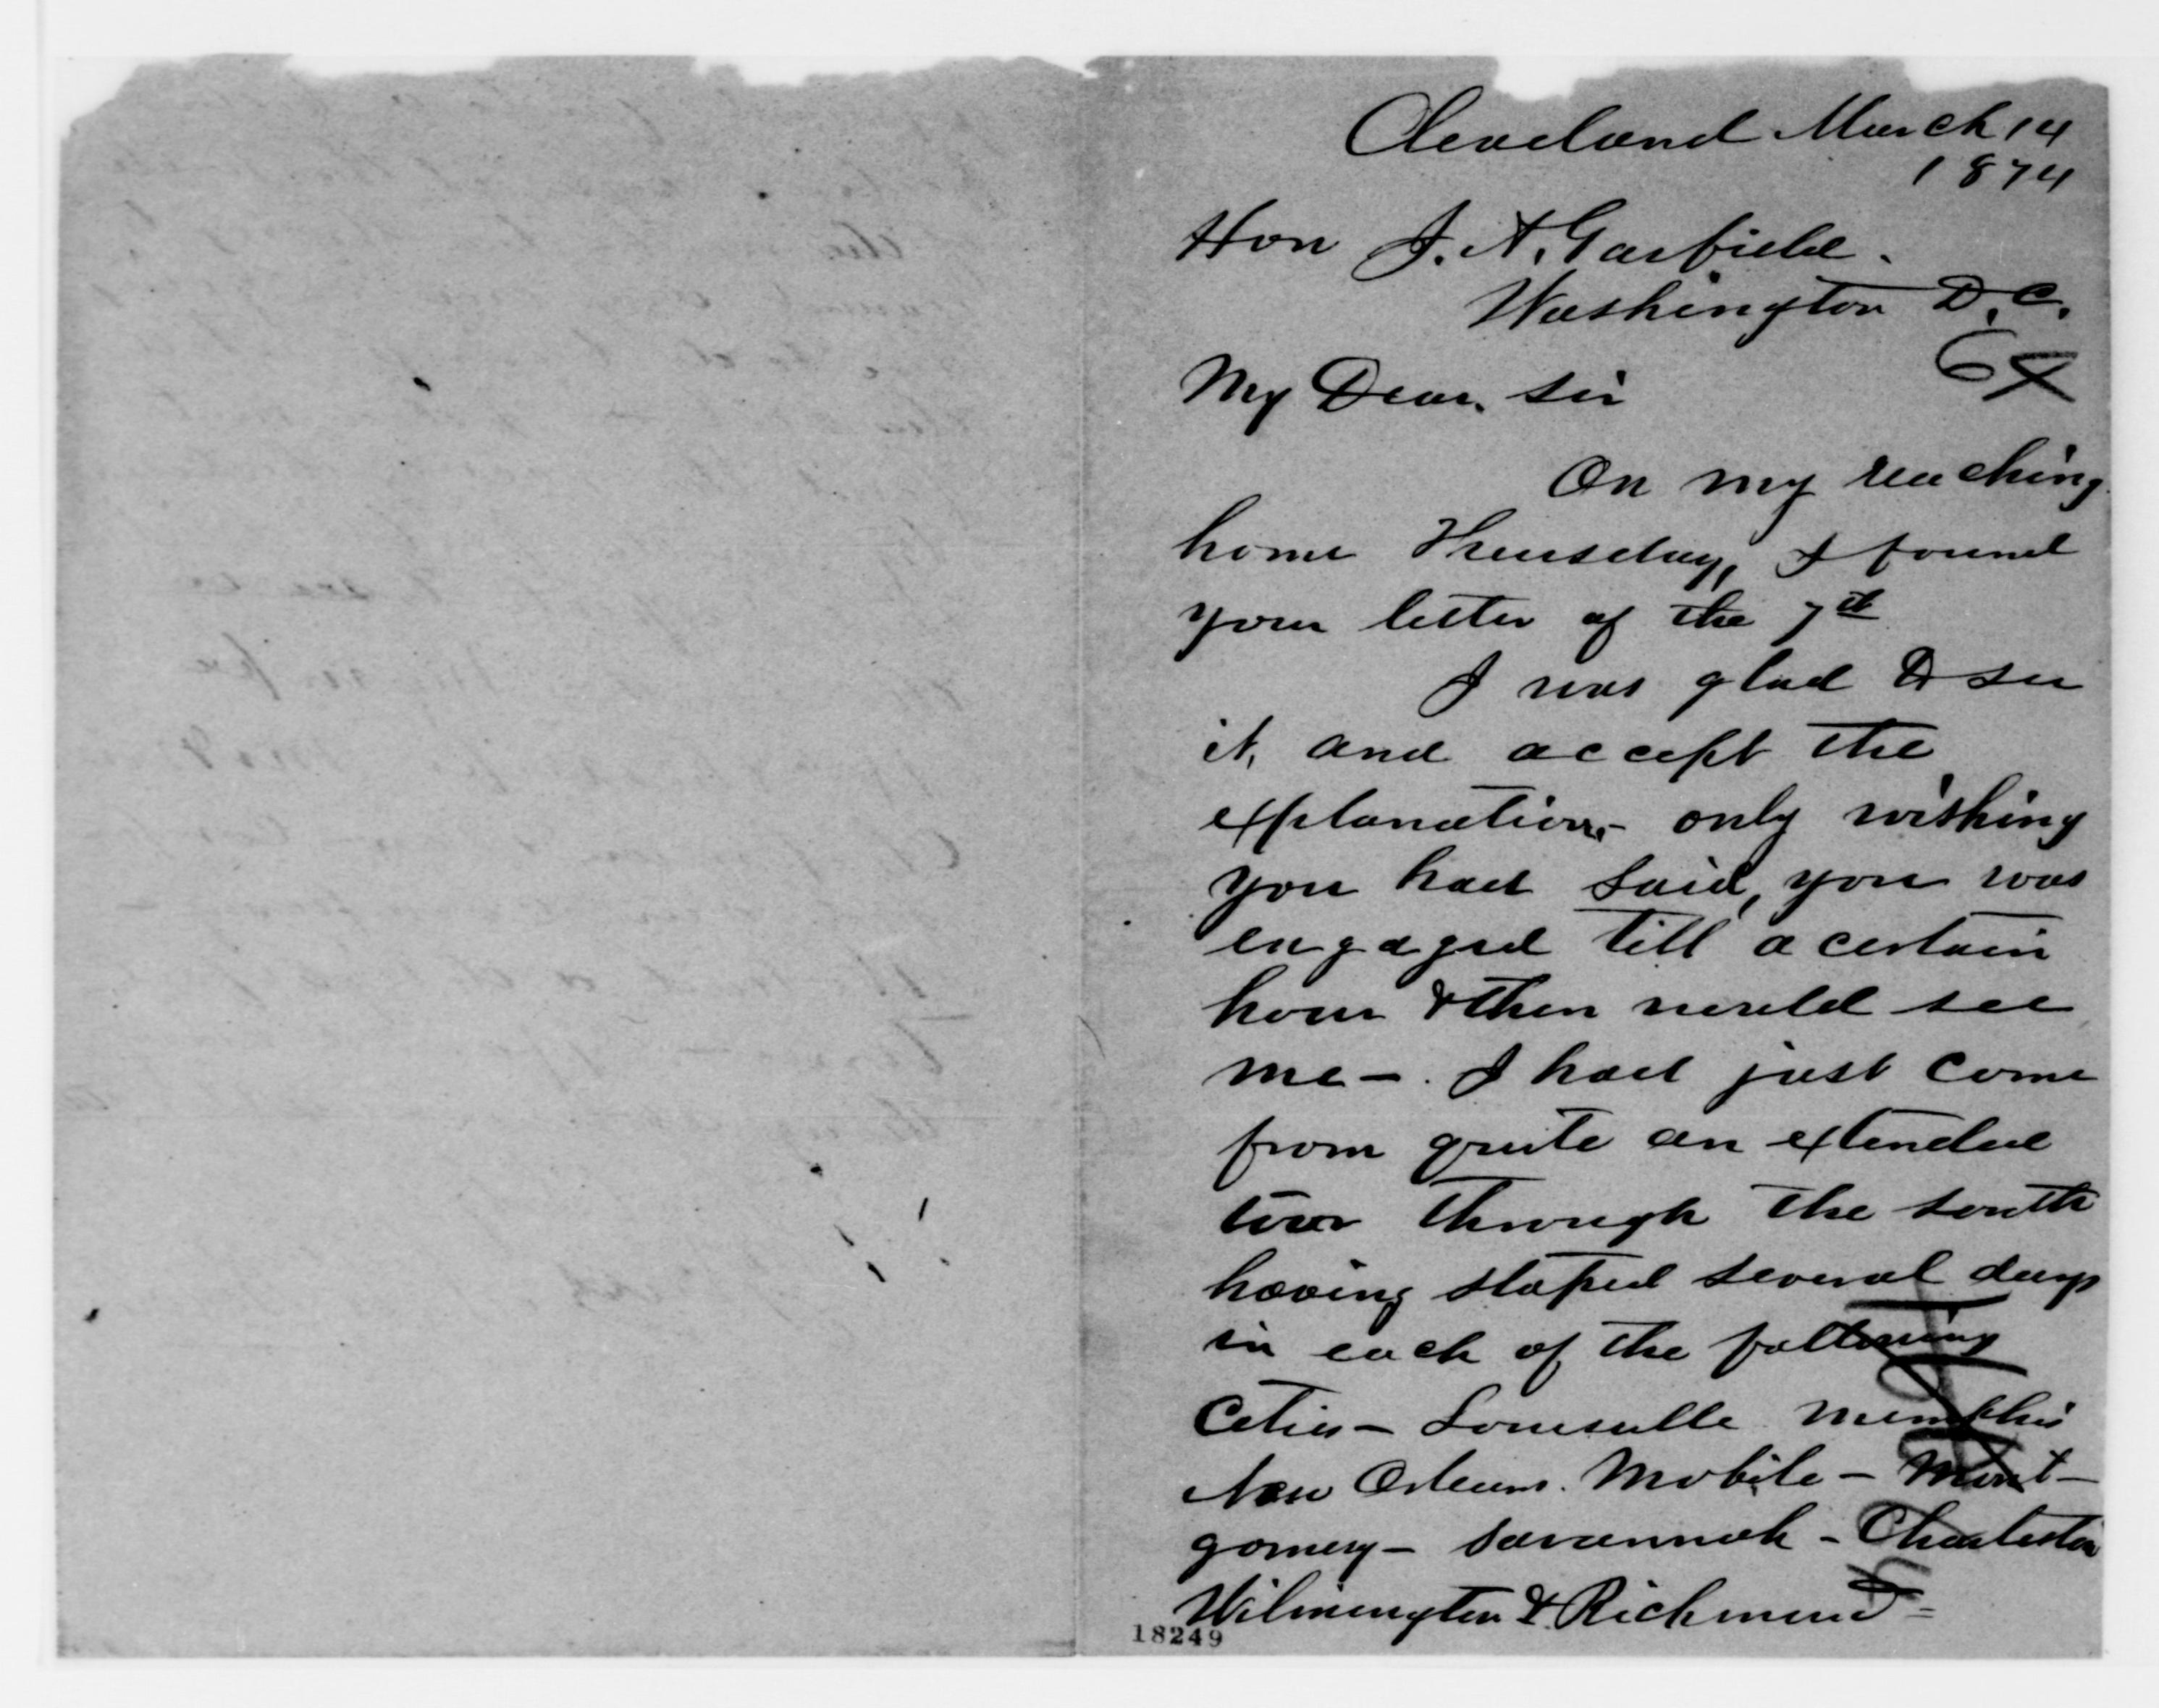 Cleveland March 14
1874
Hon J. A. Garfield.
Washington D.C.
64
My Dear Sir
On my reaching
home Thursday, I found
your letter of the 7th
I was glad to see
it, and accept the
explanation,- only wishing
you had said, you was
engaged till a certain
hour & then would see
me -. I had just come
from quite an extended
tour through the south
having stoped several days
in each of the following
Cities - Louisville Memphis
New Orleans. Mobile - Mont-
gomery - Savannah - Charleston
Wilmington & Richmond -
18249